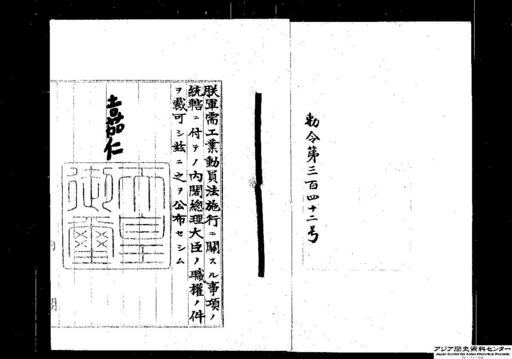 勅令第三百四十二号
朕軍需工業動員法施行ニ關スル事項ノ
統轄ニ付テノ内閣總理大臣ノ職權ノ件
ヲ裁可シ玆ニ之ヲ公布セシム
嘉仁
天皇
御璽
アジア歴史資料センター
Japan Center for Asian Historical Records